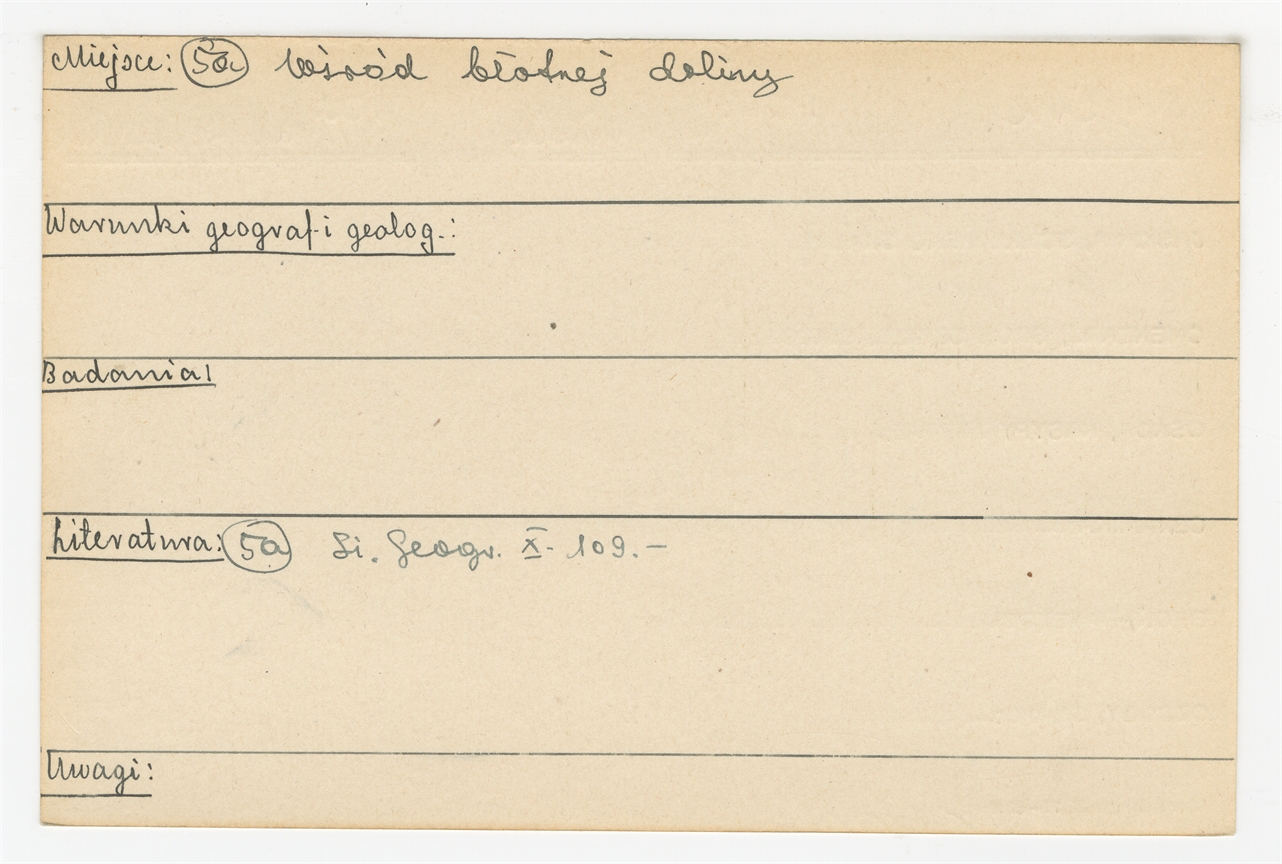 Miejsce: 5a Wśród błotnej doliny
Warunki geograf. i geolog.:
Badania:
Literatura: 5a Sł. Geogr. X. 109.-
Uwagi: